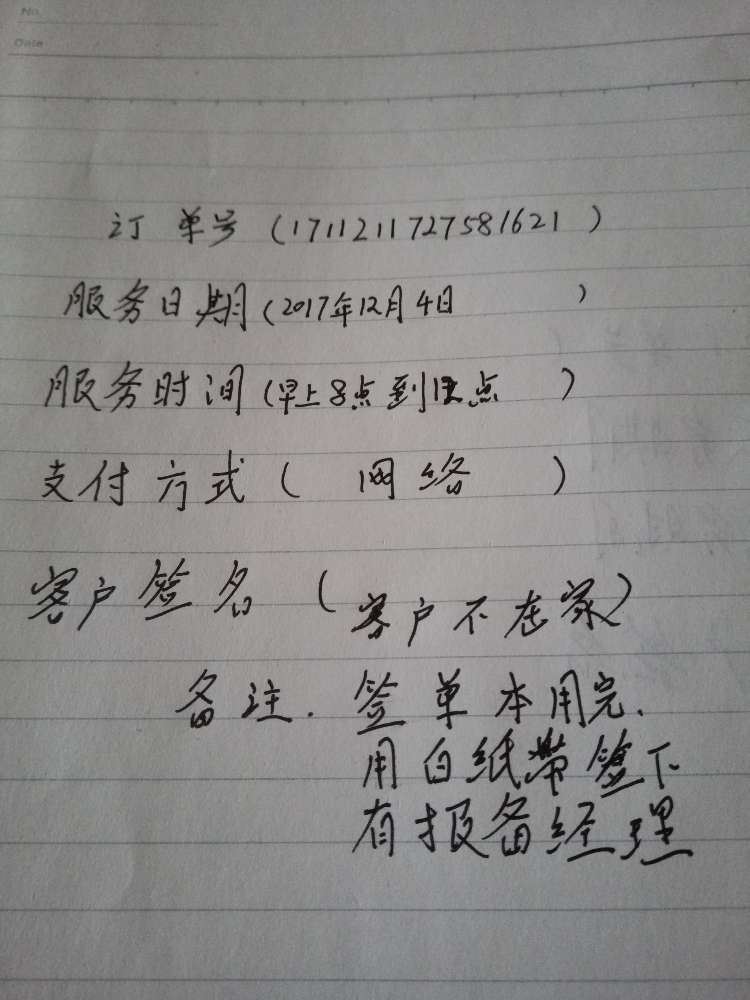 No.
Date
订单号(1711211727581621)
服务日期(2017年12月4日)
服务时间(早上8点到12点)
支付方式(网络)
客户签名(客户不在家)
备注.签单本用完.
用白纸带签下
有报备经理